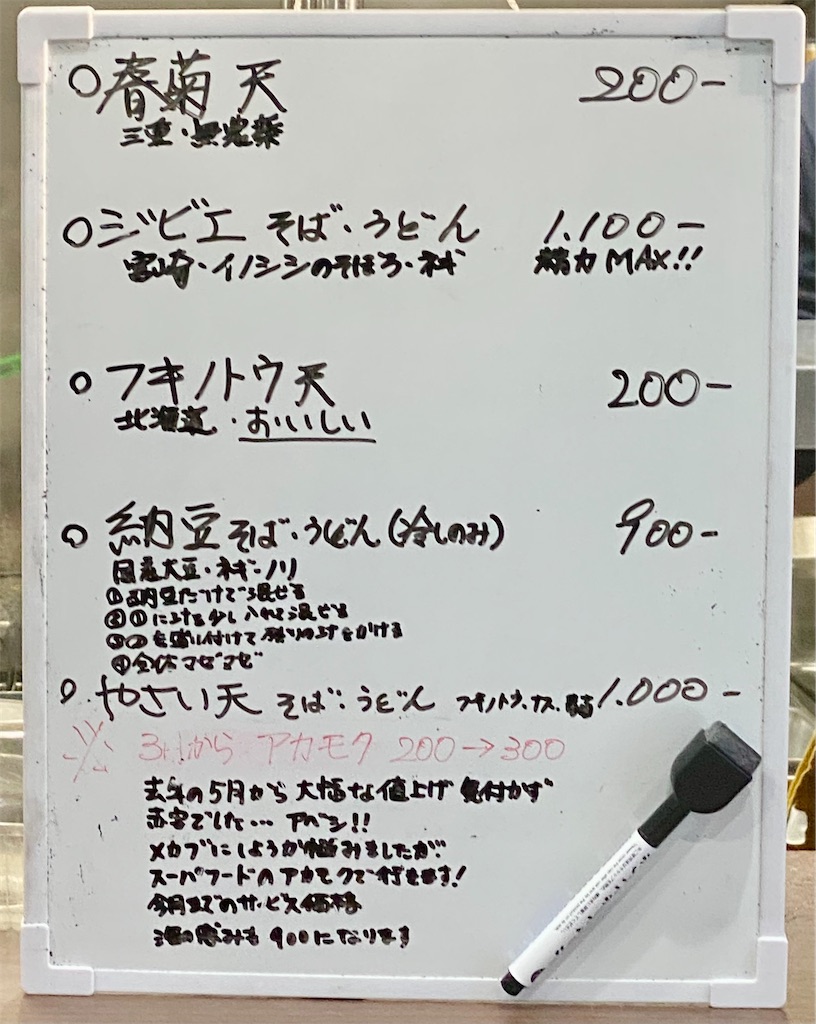 ○春菊天 200-
三重・無農薬
○ジビエ そば・うどん 1.100-
宮崎・イノシシのそぼろ・ネギ 精力MAX!!
○フキノトウ天 200-
北海道・おいしい
○納豆そば・うどん(冷しのみ) 900-
国産大豆・ネギ・ノリ
①納豆だけで混ぜる
②①に上げを少し入れて混ぜる
③②を端に付けて残りの上げをかける
④全体マゼマゼ
○やさい天 そば・うどん フキノトウ・ナス 1.000-
※3月から アカモク 200→300
去年の5月から大幅な値上げ 気付かず
赤字でした… アベシ!!
メカブにしようか悩みましたが
スーパフードのアカモクで行きます!
今月までのサービス価格
海の恵みも900になります